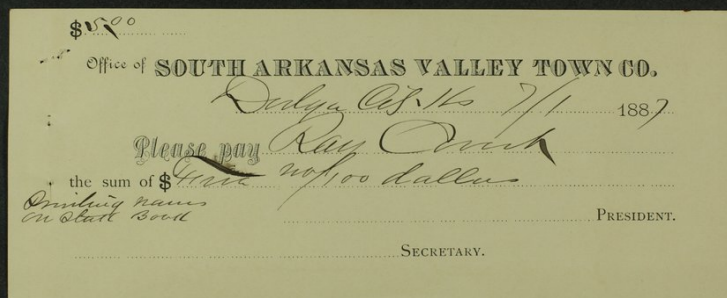 $5.00
Office of SOUTH ARKANSAS VALLEY TOWN CO.
Dodge City Ks 7/1 1887
Please pay Ray
the sum of $ Five no/100 dollars
names
on State Bood
PRESIDENT.
SECRETARY.